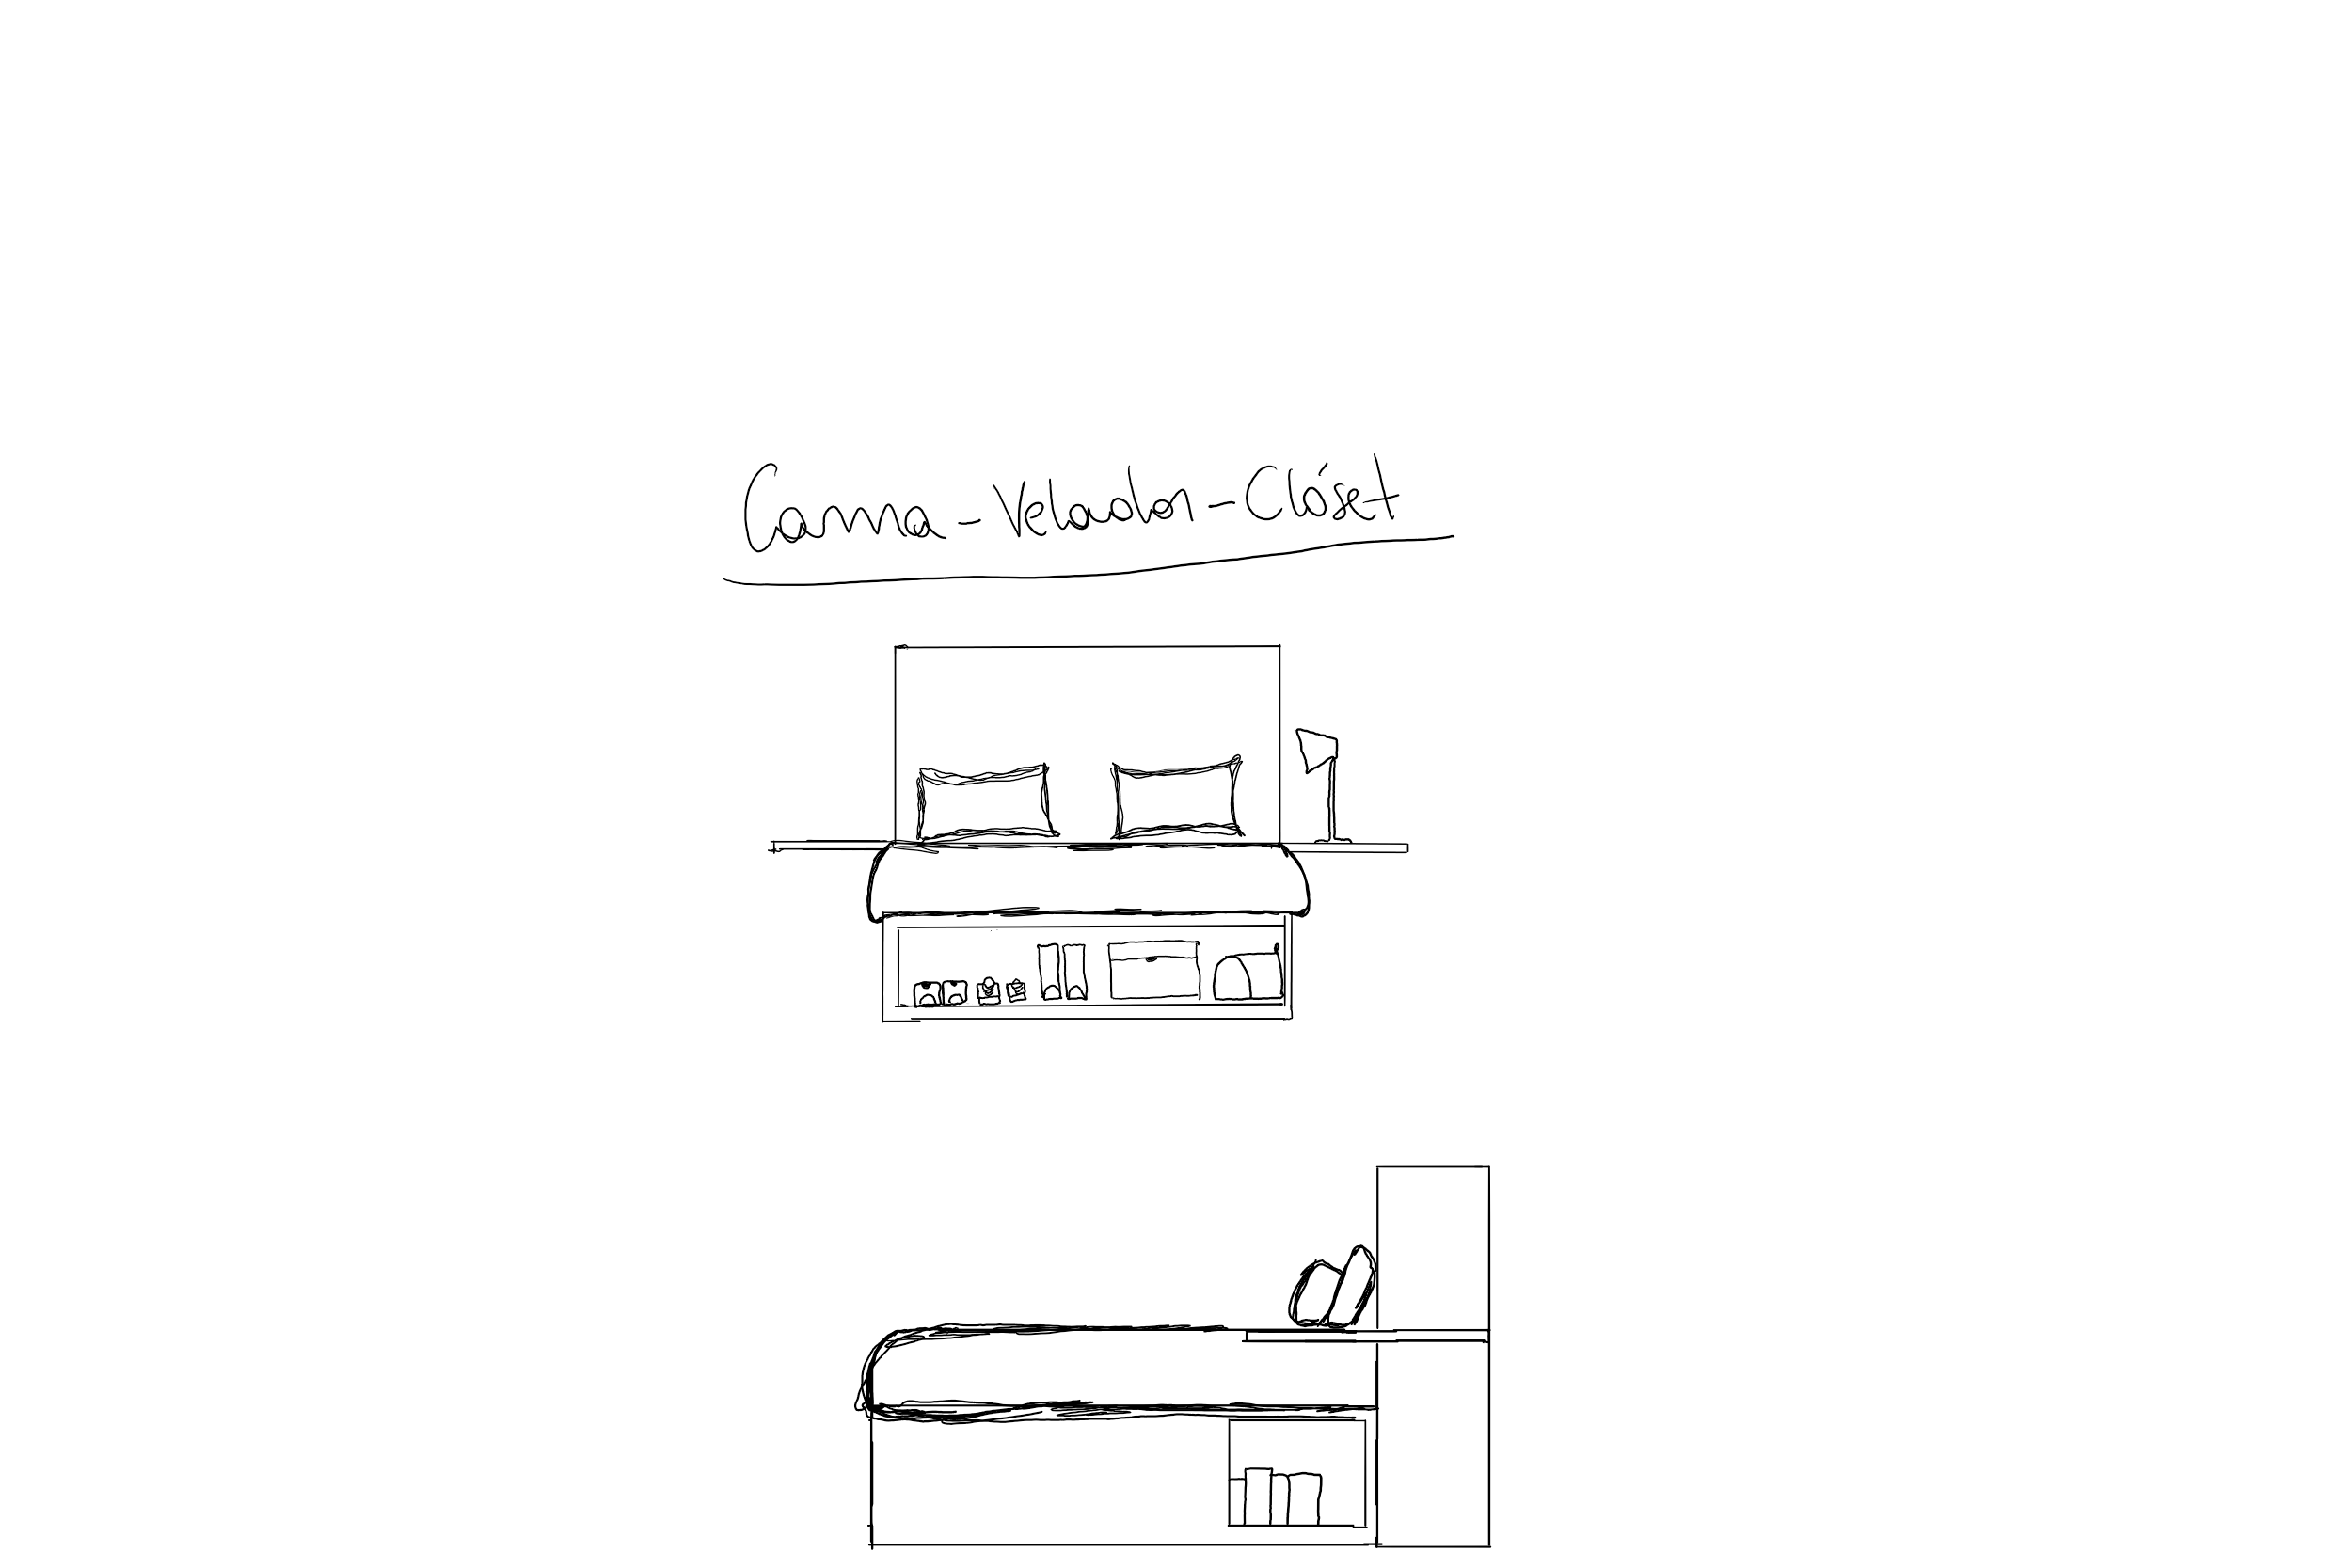 Cama-Velador-Clóset